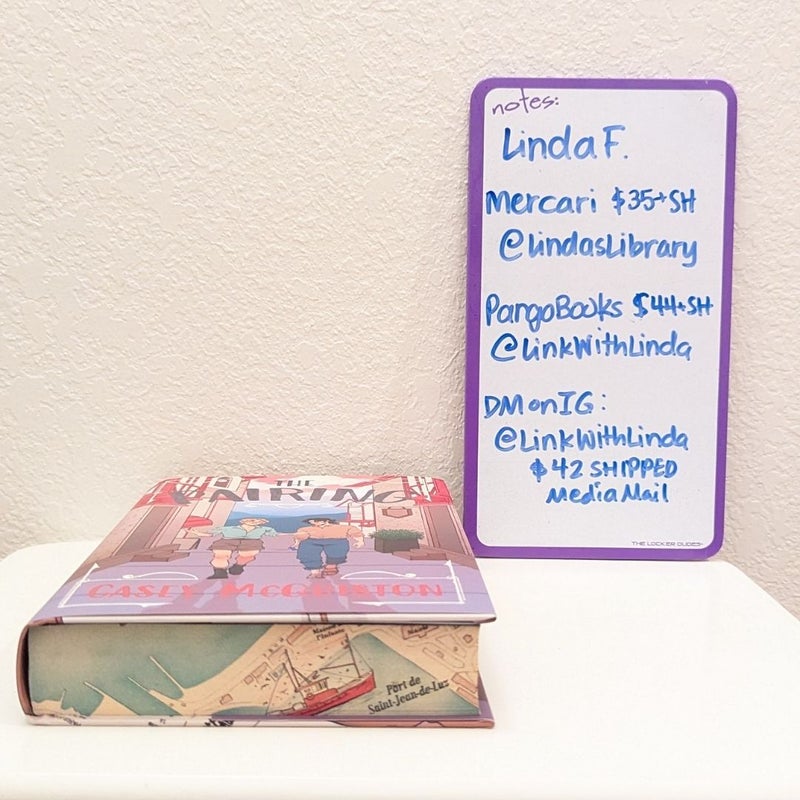 notes:
Linda F.
Mercari $35+SH
@LindasLibrary
PangoBooks $44+SH
@LinkWithLinda
DM on IG:
@LinkWithLinda
$42 SHIPPED
Media Mail
THE LOCKER DUDES
THE
PAIRING
CASEY McQUISTON
Port de
Saint-Jean-de-Luz